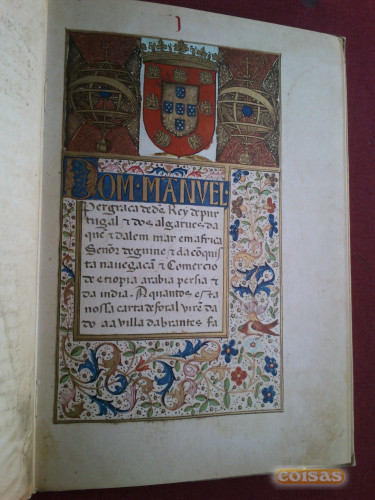 DOM·MANVEL·
Per graca de ds. Rey de pur
tugal ⁊ dos algarues da
quẽ ⁊ dalem mar em africa
Señor de guine ⁊ da cõquis
ta nauegacã ⁊ Comercio
de etiopia arabia persia ⁊
da india. A quantos esta
nossa carta de foral virẽ da
do aa villa dabrantes fa
coisas